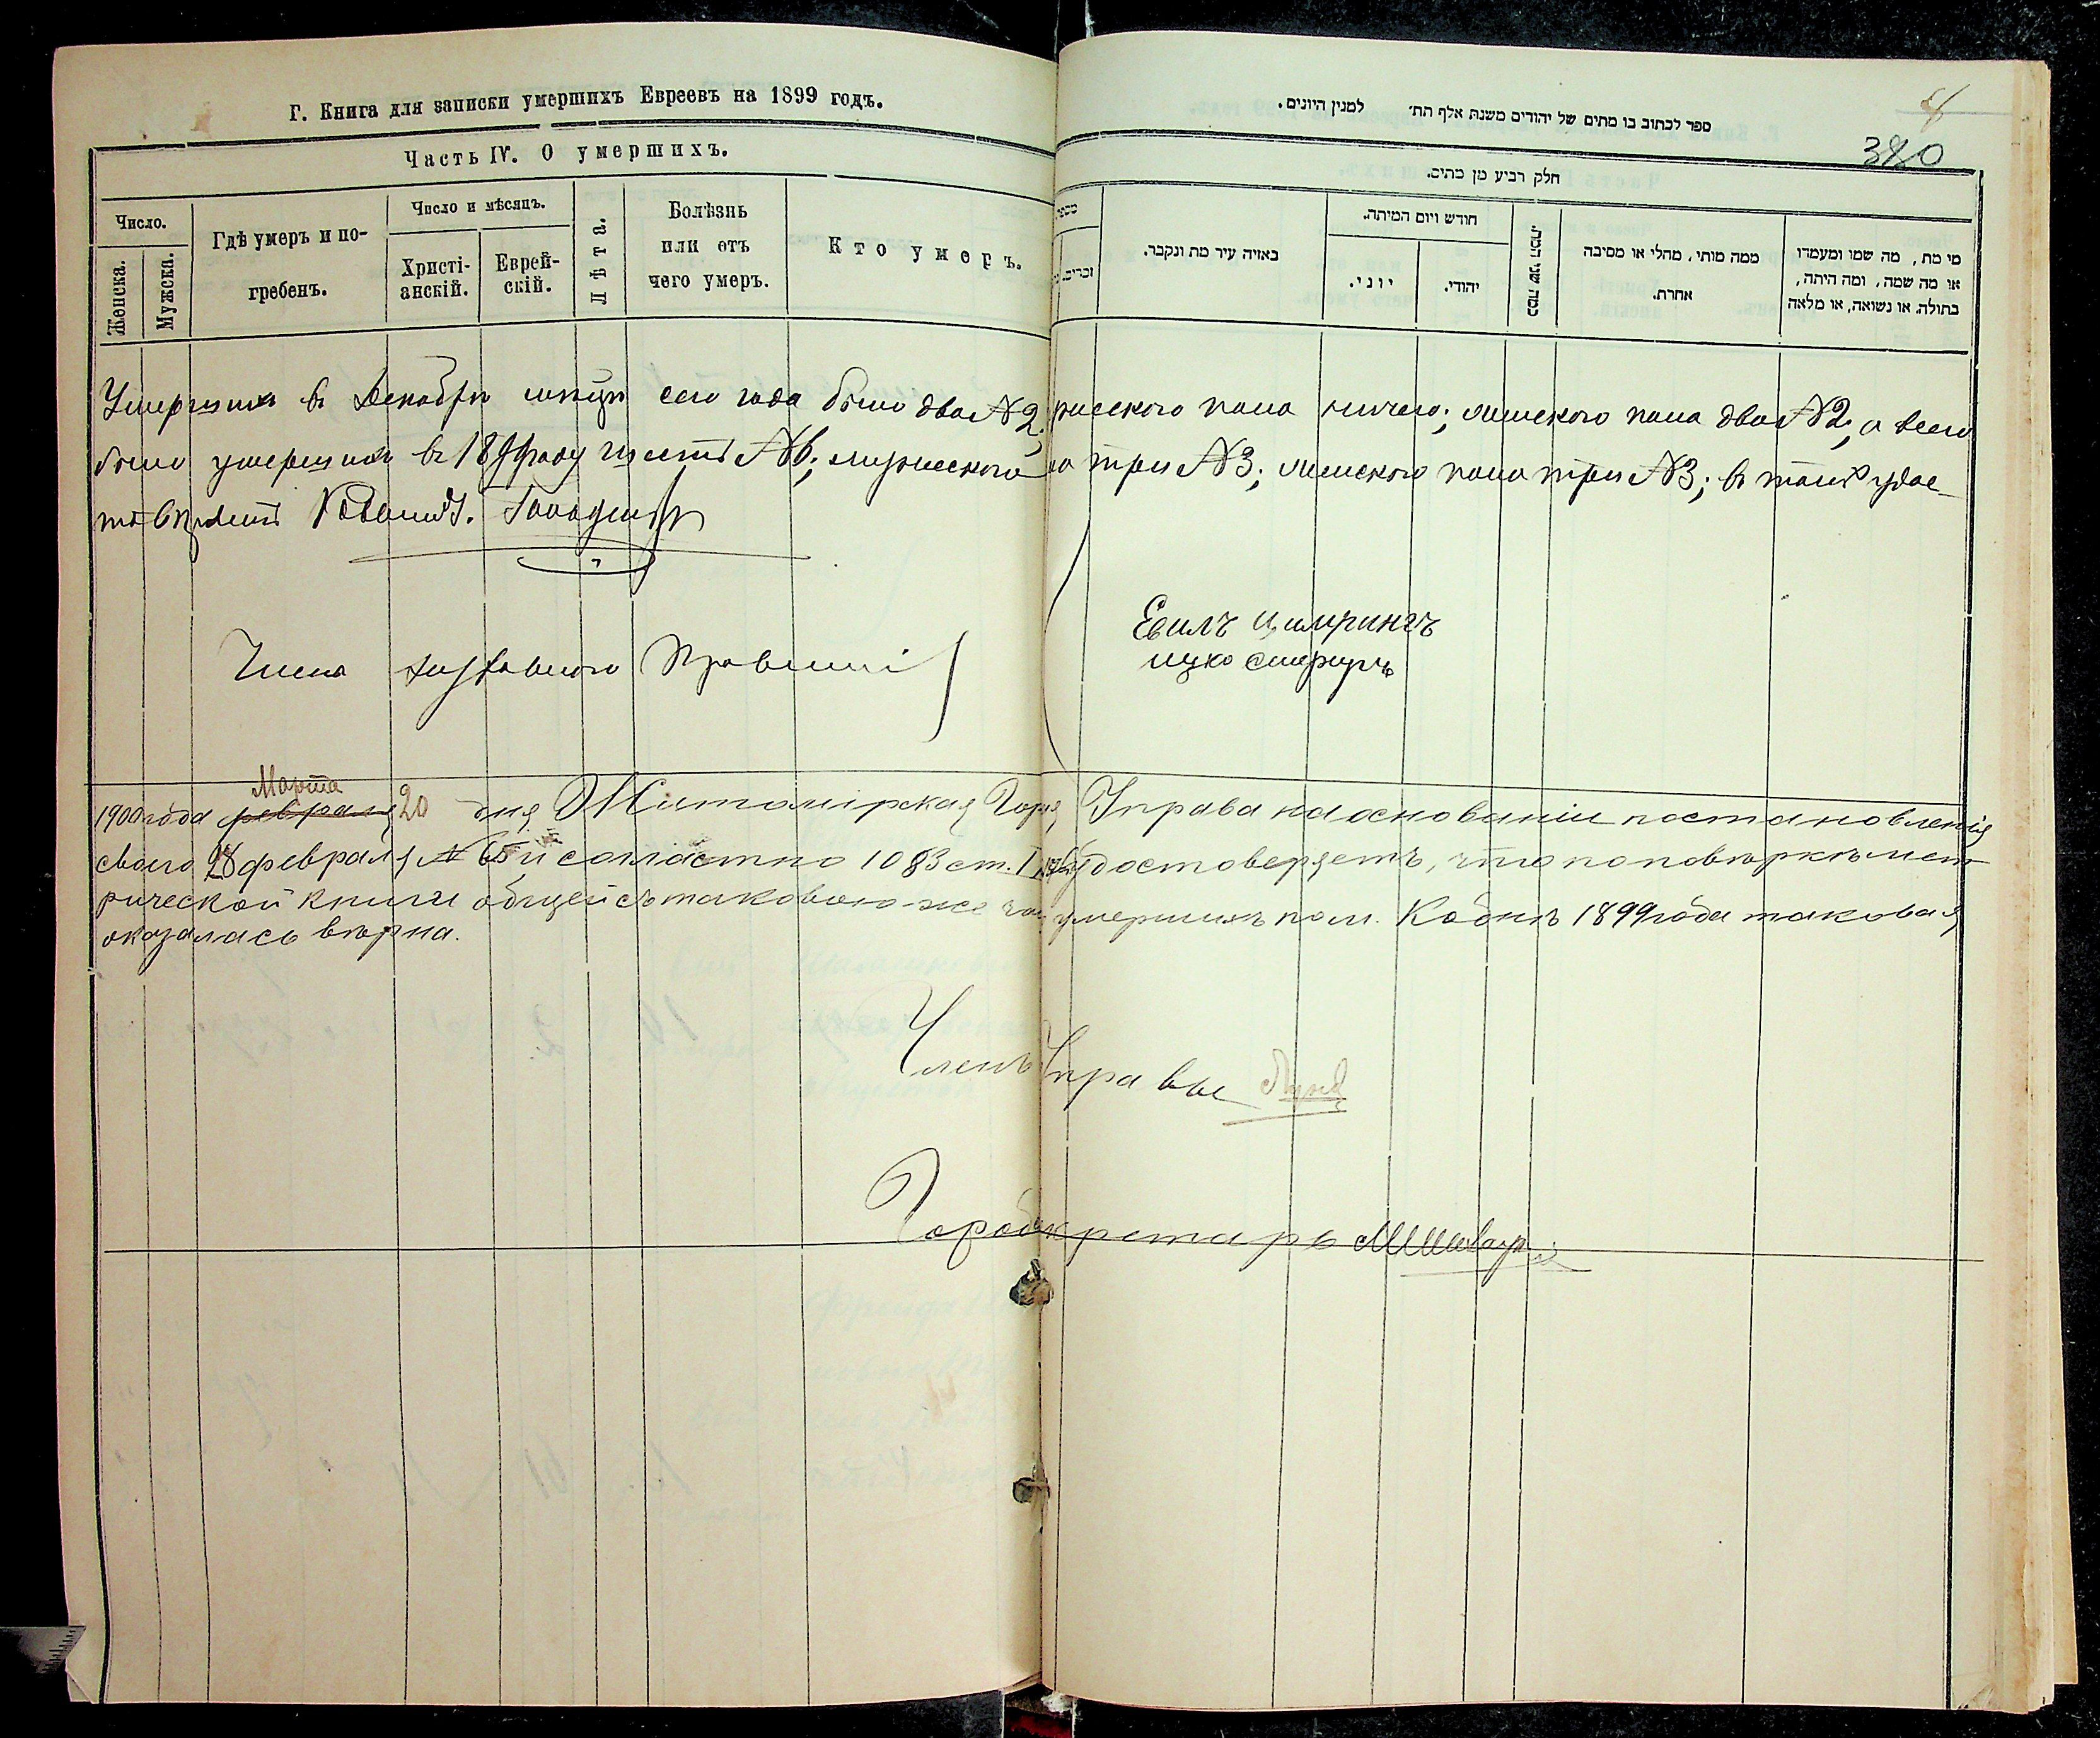 Г. Книга для записки умершихъ Евреевъ на 1899 годъ.
Часть IV. О умершихъ.
Число.
Женска.
Мужска.
Гдѣ умеръ и по-
гребенъ.
Число и мѣсяцъ.
Христі-
анскій.
Еврей-
скій.
Лѣта.
Болѣзнь
или отъ
чего умеръ.
Кто умеръ.
ספר לכתוב בו מתים של יהודים משנת אלף תת׳ למנין היונים.
380
חלק רביע מן מתים.
מספר
זכרים.
באיזה עיר מת ונקבר.
חודש ויום המיתה.
יוני.
יהודי.
כמה שני המת.
ממה מותי, מחלי או מסיבה
אחרת.
מי מת, מה שמו ומעמדו
או מה שמה, ומה היתה,
בתולה או נשואה, או מלאה
Умершихъ въ Декабрѣ мѣсяцѣ сего года было два №2; мужескаго пола ничего; женскаго пола два №2, а всего
было умершихъ въ 1899 году шесть №6; мужескаго по три №3; женскаго пола три №3; въ томъ удос-
Члены Духовнаго Правленія
Евилъ Цимрингъ
ицко
1900 года февраля Марта 20 дня Житомірская Горо Управа на основаніи постановленія
своего 28 февраля № 65 и согласно 1083 ст. I удостоверяетъ, что по повѣркѣ мет
рической книги общей съ таковою-же умершихъ кол. Кодня 1899 года таковая
оказалась вѣрна.
Членъ Управы
Гор секретарь